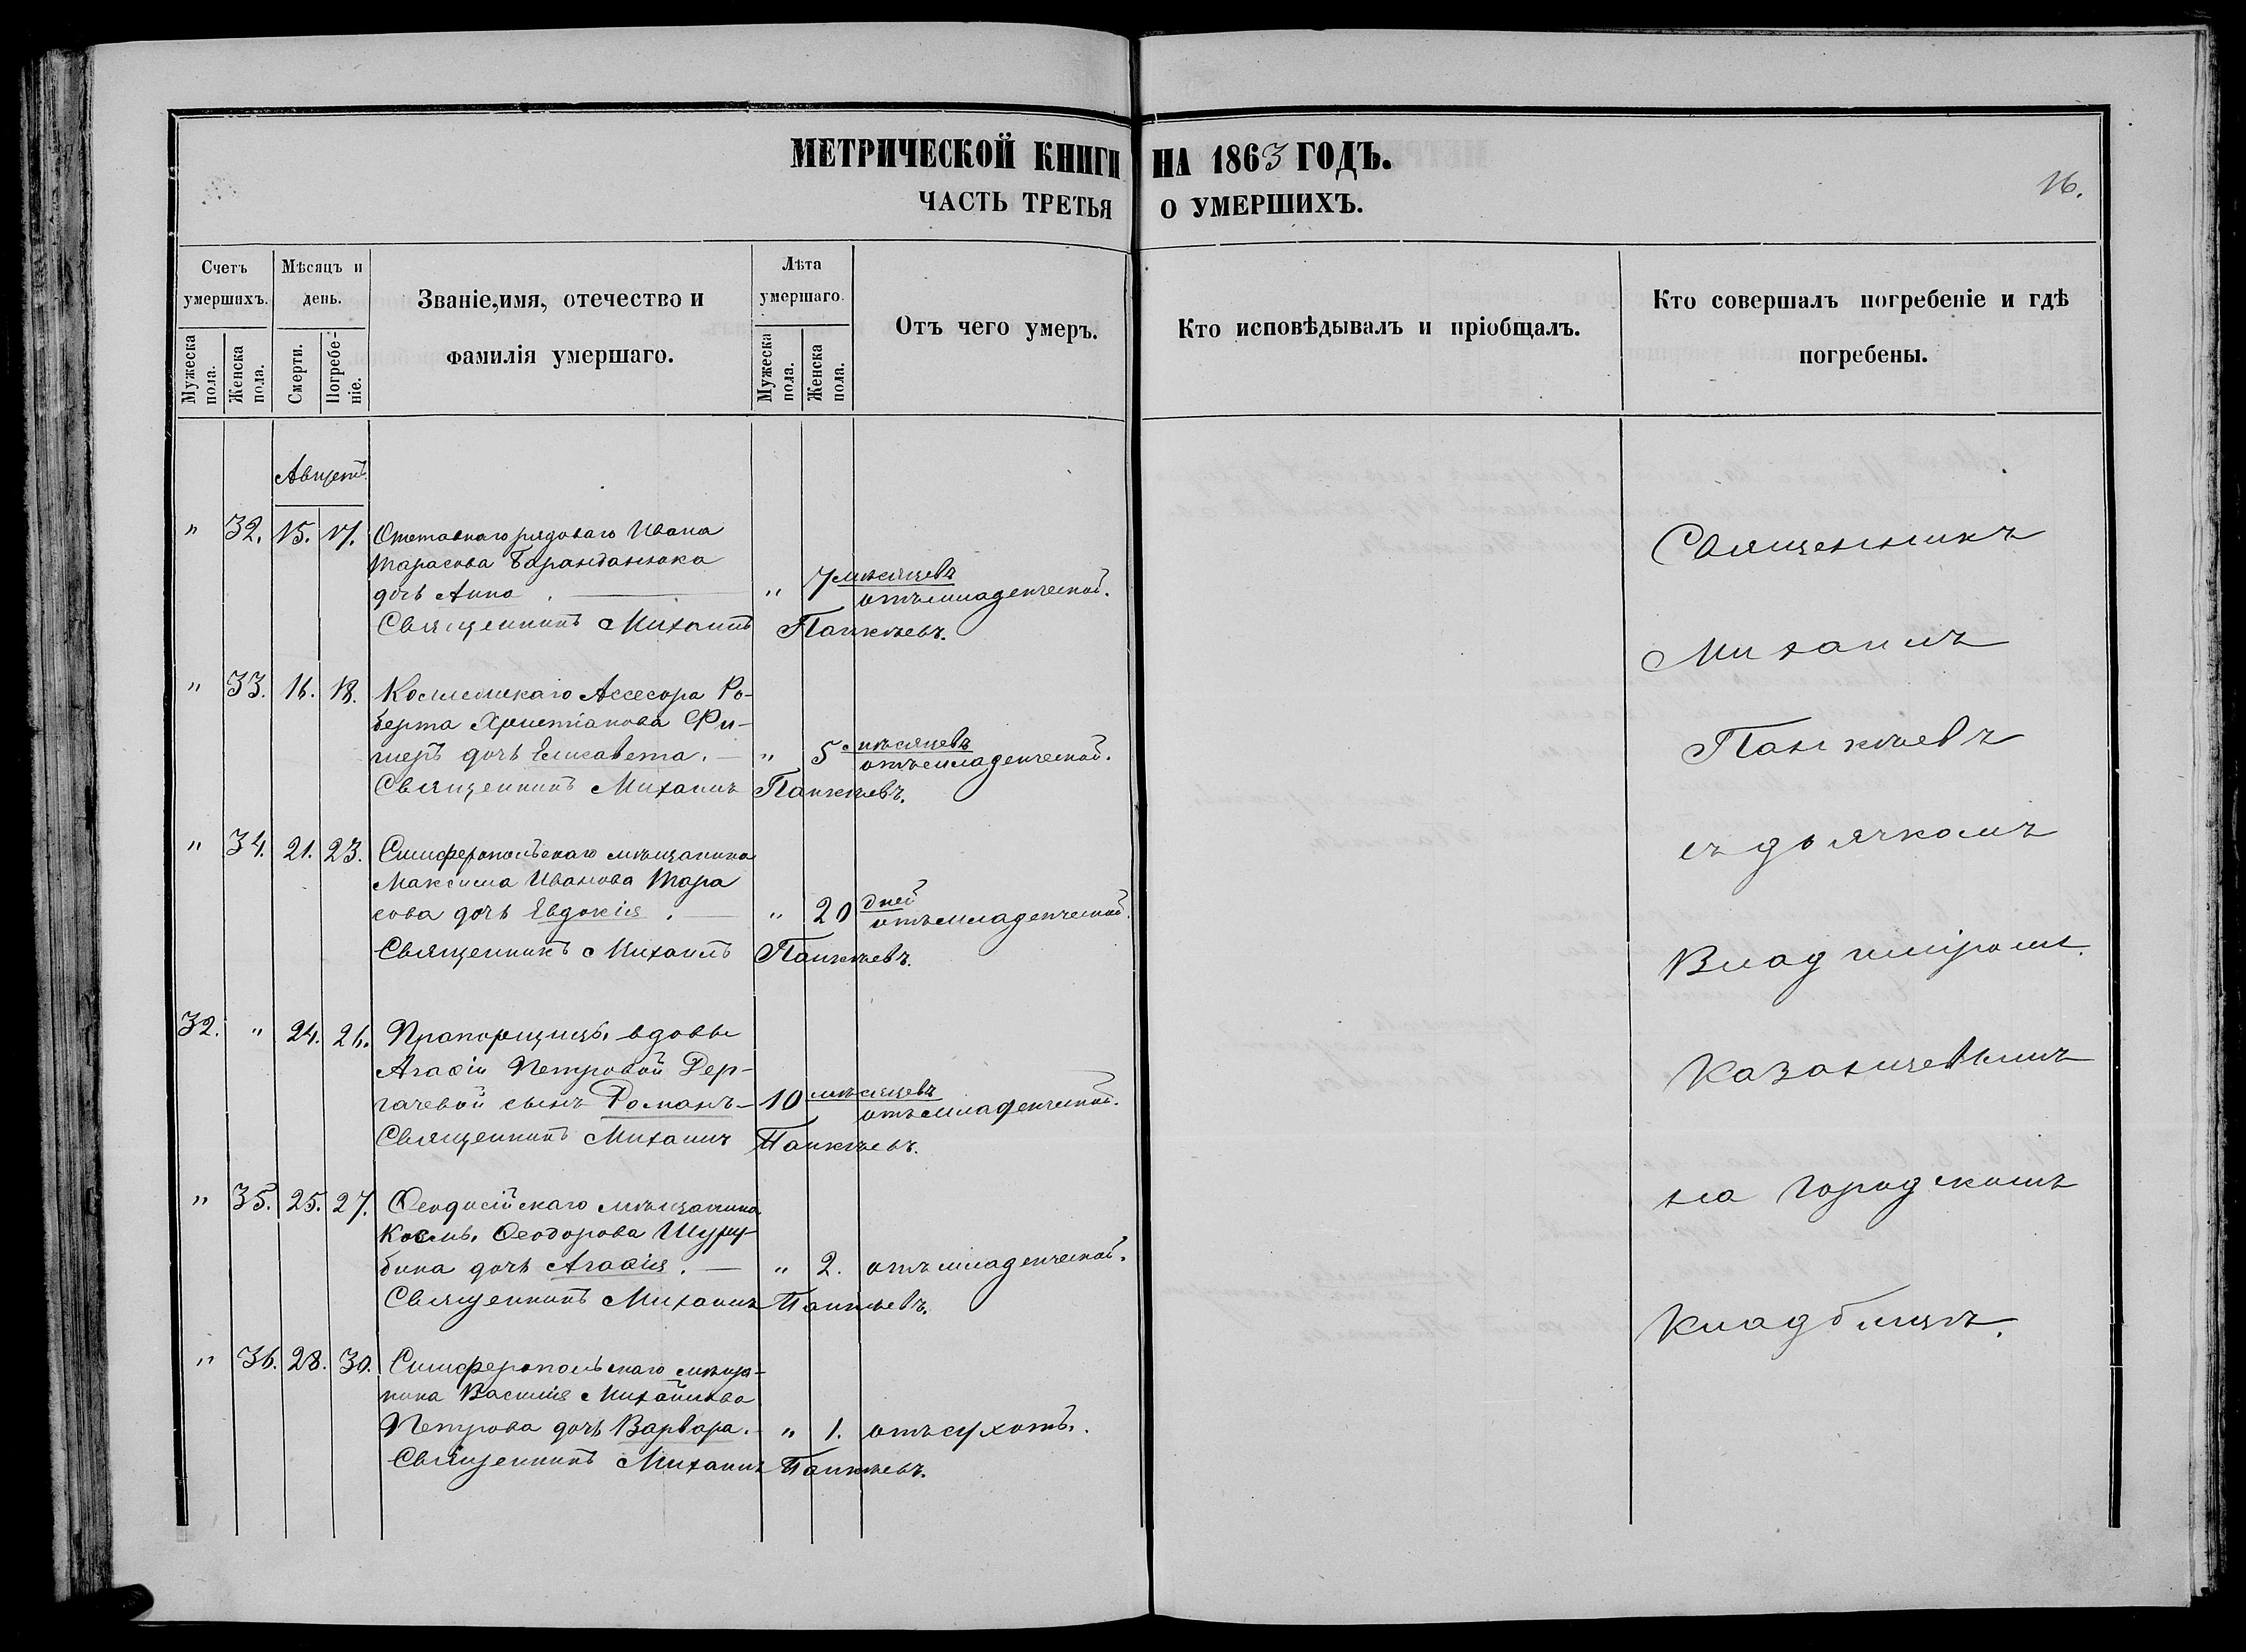 МЕТРИЧЕСКОЙ КНИГИ НА 1863 ГОДЪ.
ЧАСТЬ ТРЕТЬЯ О УМЕРШИХЪ.
16.
Счетъ умершихъ.
Мужеска пола.
Женска пола.
Мѣсяцъ и день.
Смерти.
Погребенiе.
Званiе, имя, отечество и
фамилiя умершаго.
Лѣта умершаго.
Мужеска пола.
Женска пола.
Отъ чего умеръ.
Кто исповѣдывалъ и прiобщалъ.
Кто совершалъ погребенiе и гдѣ
погребены.
Августъ
" 32. 15. 17. Отставнаго рядоваго Ивана
Тарасова Баранданюка
дочь Анна . " 7 мѣсяцевъ отъ младенческой.
Священникъ Михаилъ Панкѣевъ.
" 33. 16. 18. Коллежскаго Ассесора Ро-
берта Христiанова Фи-
шеръ дочь Елисавета. " 5 мѣсяцевъ отъ младенческой.
Священникъ Михаилъ Панкѣевъ.
" 34. 21. 23. Симферопольскаго мѣщанина
Максима Иванова Тара
сова дочь Евдокiя . " 20 дней отъ младенческой.
Священникъ Михаилъ Панкѣевъ.
32. " 24. 26. Прапорщицы вдовы
Агафiи Петровой Дер-
гачевой сынъ Романъ 10 мѣсяцевъ отъ младенческой.
Священникъ Михаилъ Панкѣевъ.
" 35. 25. 27. Ѳеодосiйскаго мѣщанина
Космы Ѳеодорова Шуру-
бина дочь Агафiя. " 2. отъ младенческой.
Священникъ Михаилъ Панкѣевъ.
" 36. 28. 30. Симферопольскаго мѣща-
нина Василiя Михайлова
Петрова дочь Варвара. " 1. отъ сухоты.
Священникъ Михаилъ Панкѣевъ.
Священникъ
Михаилъ
Панкѣевъ
съ дьячкомъ
Владимiромъ
Казаничевымъ
на городскомъ
Кладбищѣ.